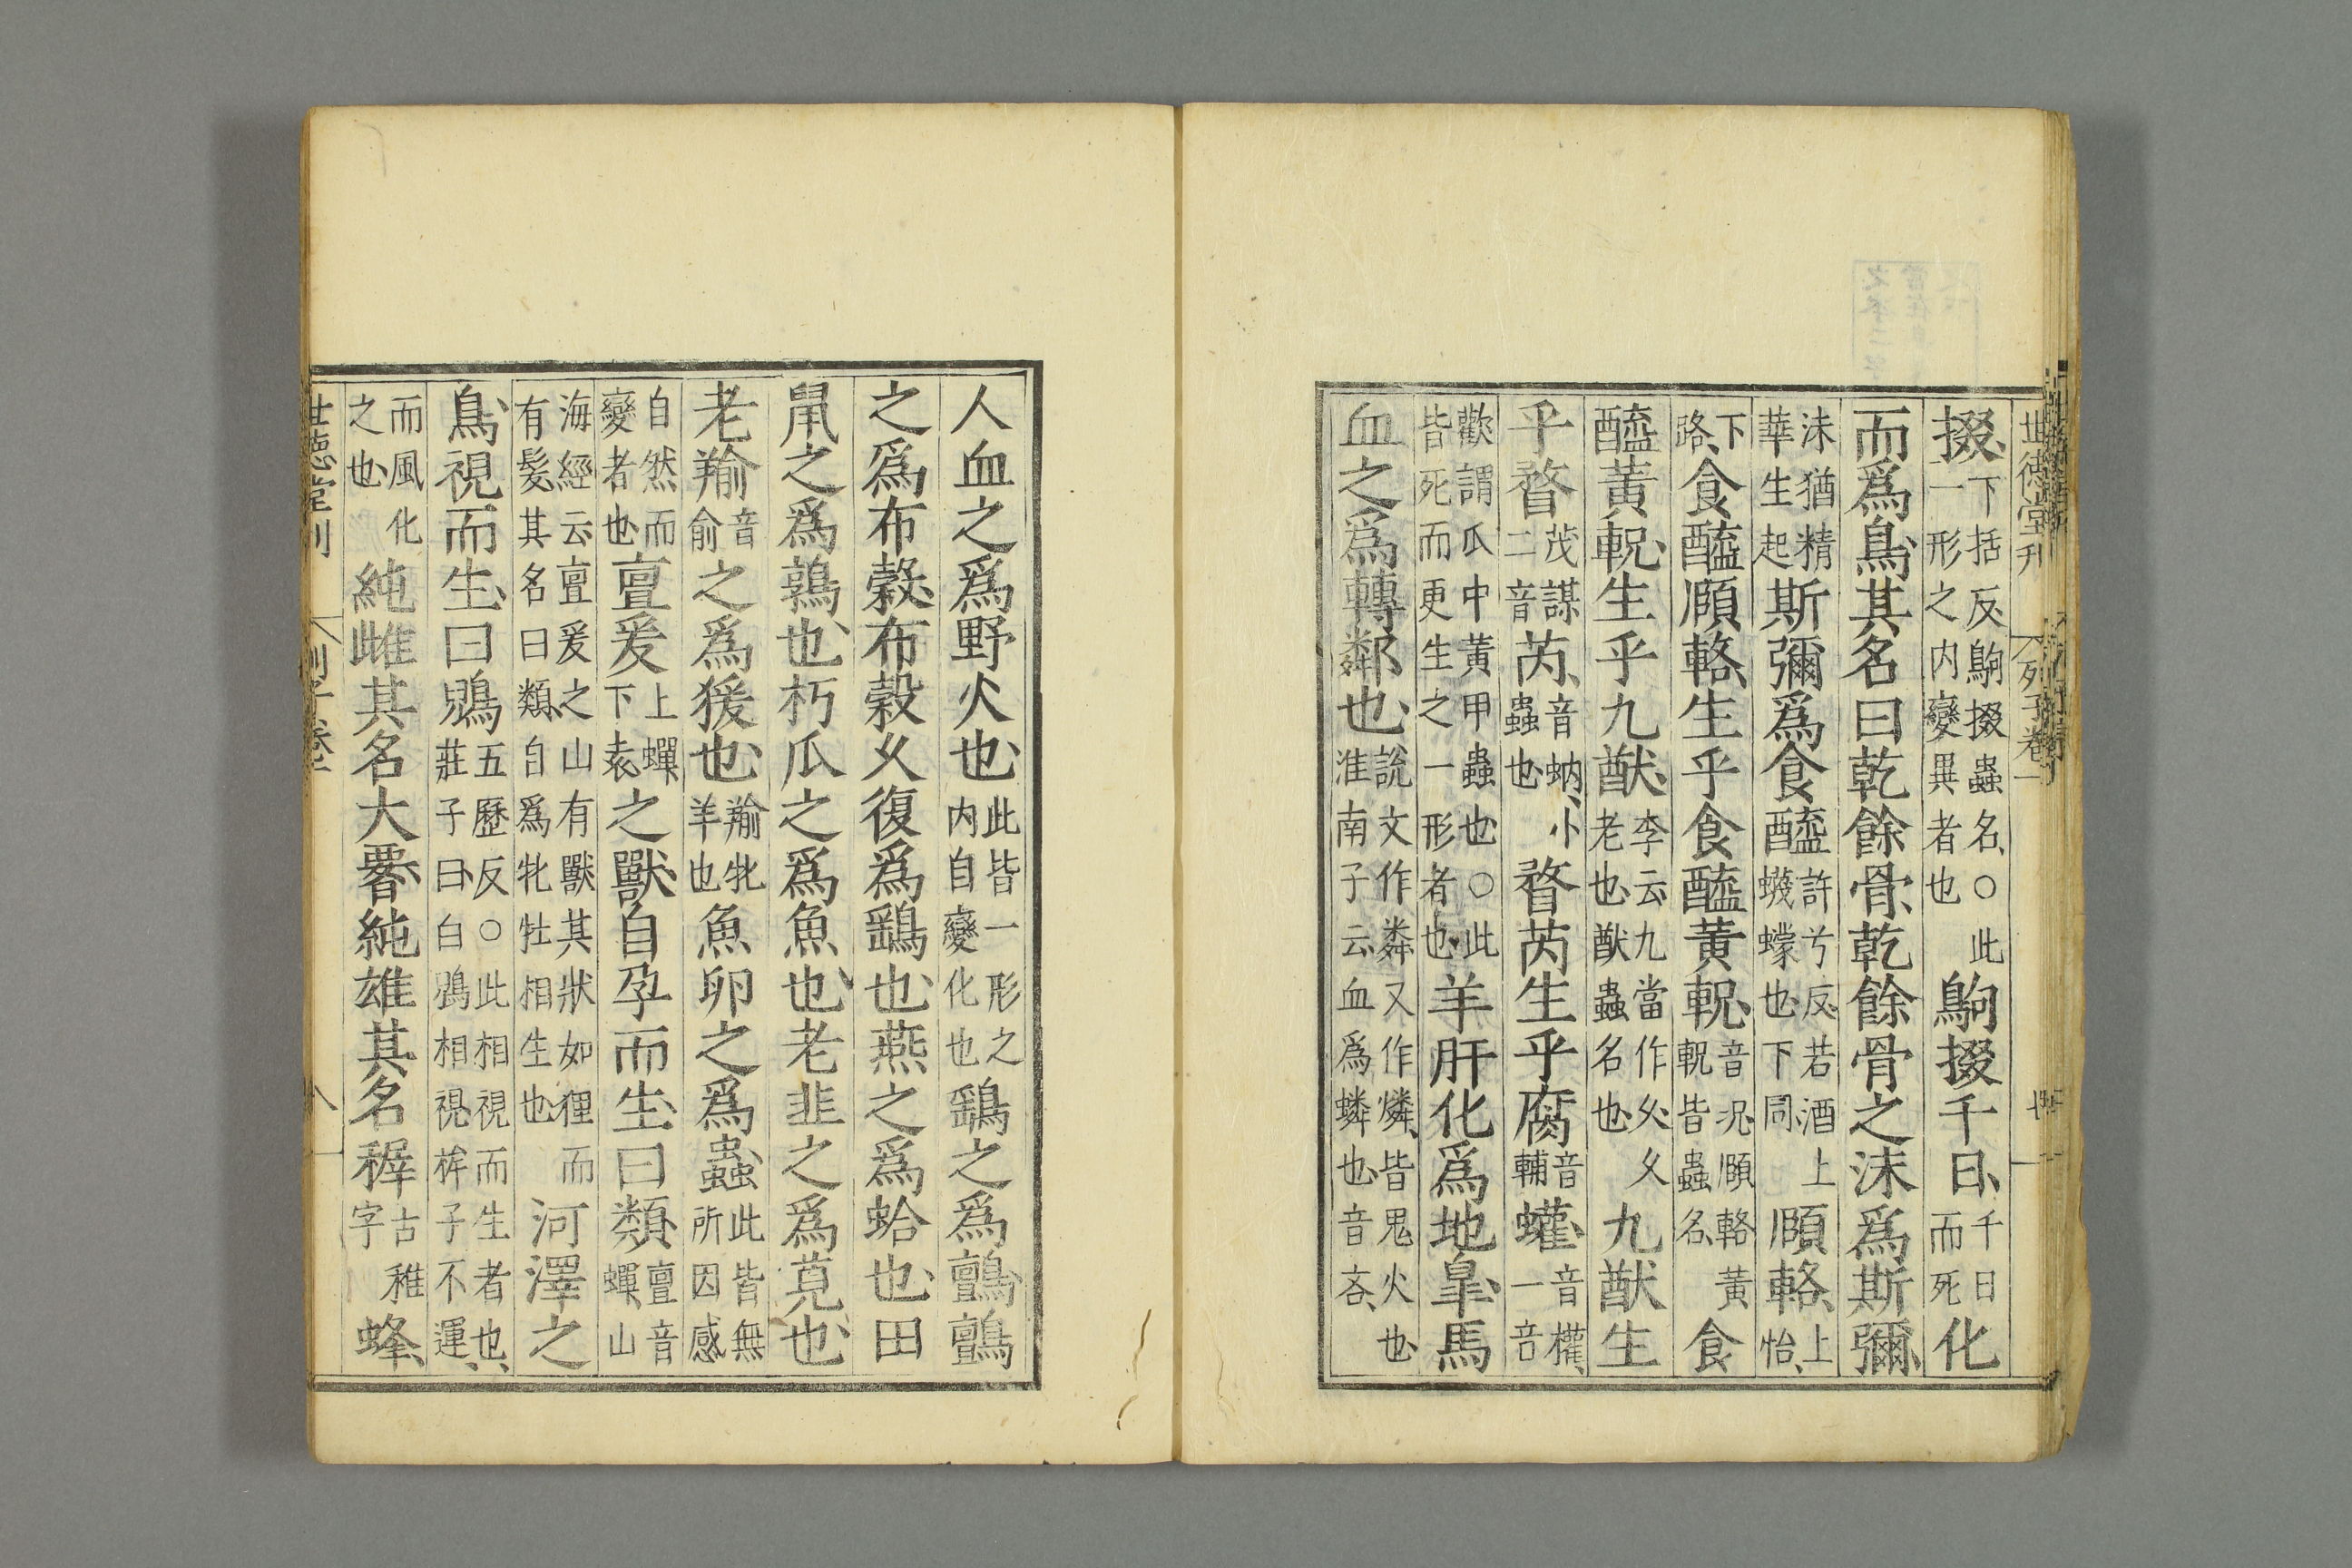 世德堂刊 列子卷一 七
掇下括反鴝掇蟲名○此一形之内變異者也鴝掇千日千日而死化
而爲鳥其名曰乾餘骨乾餘骨之沬爲斯彌
沬猶精華生起斯彌爲食醯許兮反若酒上蠛蠓也下同頤輅上怡
下路食醯頤輅生乎食醯黄軦音况頤輅黄軦皆蟲名食
醯黄軦生乎九猷李云九當作久久老也猷蟲名也九猷生
乎瞀茂謀二音芮音蚋小蟲也瞀芮生乎腐音輔蠸音權一音
歡謂瓜中黄甲蟲也○此皆死而更生之一形者也羊肝化爲地臯馬
血之爲轉鄰也說文作粦又作燐皆鬼火也淮南子云血爲燐也音吝
人血之爲野火也此皆一形之内自變化也鷂之爲鸇鸇
之爲布穀布穀久復爲鷂也燕之爲蛤也田
鼠之爲鶉也朽瓜之爲魚也老韭之爲莧也
老羭音俞之爲猨也羭牝羊也魚卵之爲蟲此皆無所因感
自然而變者也亶爰上蟬下袁之獸自孕而生曰類亶音蟬山
海經云亶爰之山有獸其狀如狸而有髮其名曰類自爲牝牡相生也河澤之
鳥視而生曰鶂五歷反○此相視而生者也莊子曰白鶂相視眸子不運
而風化之也純雌其名大䐗純雄其名稺古稚字蜂
世德堂刊 列子卷一 八